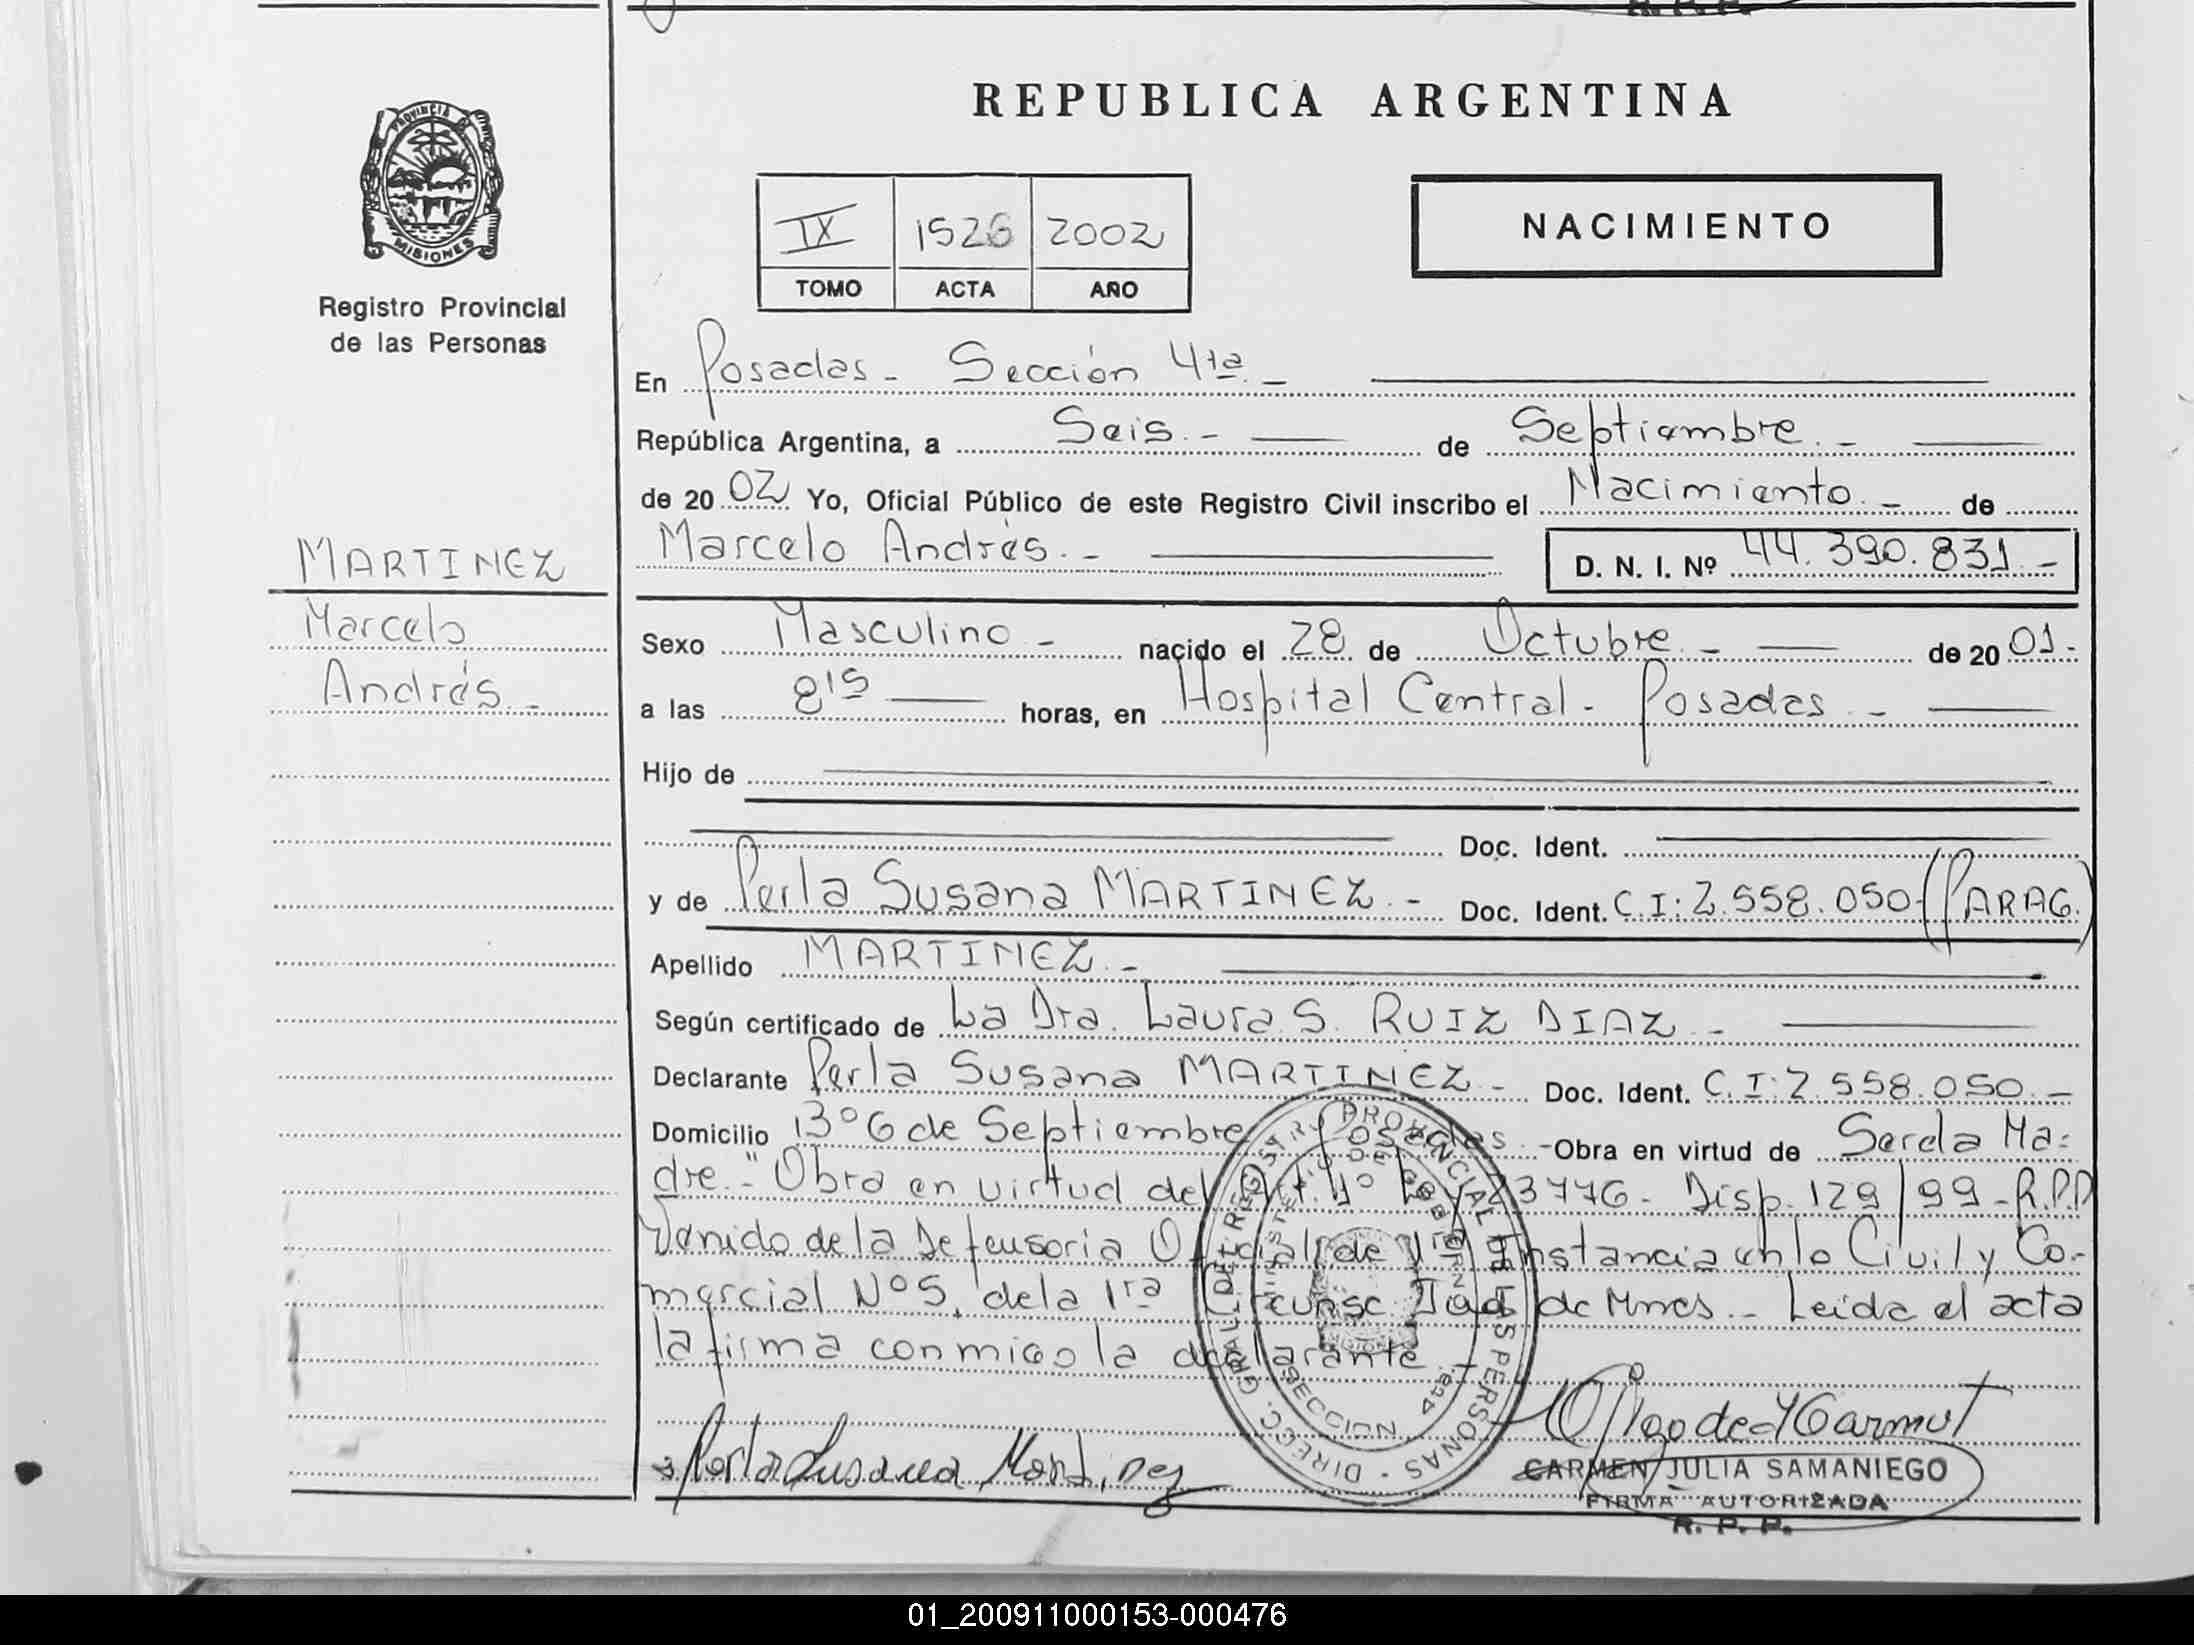 REPUBLICA ARGENTINA
PROVINCIA DE
MISIONES
Registro Provincial
de las Personas
IX 1526 2002
TOMO ACTA AÑO
NACIMIENTO
En Posadas - Sección 4ta. -
República Argentina, a Seis. - de Septiembre. -
de 20 02 Yo, Oficial Público de este Registro Civil inscribo el Nacimiento. - de
Marcelo Andrés. - D. N. I. Nº 44.390.831. -
MARTINEZ
Marcelo
Andrés. -
Sexo Masculino - nacido el 28 de Octubre. - de 20 01.-
a las 8'15 horas, en Hospital Central - Posadas. -
Hijo de
Doc. Ident.
y de Perla Susana MARTINEZ. - Doc. Ident. C.I: 2.558.050 - (PARAG.)
Apellido MARTINEZ. -
Según certificado de La Dra. Laura S. RUIZ DIAZ. -
Declarante Perla Susana MARTINEZ. - Doc. Ident. C.I: 2.558.050. -
Domicilio 13º 6 de Septiembre Posadas. - Obra en virtud de Ser la Ma=
dre. - "Obra en virtud del Art. 1º Ley 23776 - Disp. 129/99 - R.P.P
Venido de la Defensoria Oficial de 1ra Instancia en lo Civil y Co-
mercial Nº 5, de la 1ra Circunsc. Jud de Mnes. - Leida el acta
la firma conmigo la declarante. -
DIRECC. GRAL. DEL REGISTRO PROVINCIAL DE LAS PERSONAS
MINISTERIO DE GOBIERNO
SECCION 4ta.
Perla Susana Martinez
CARMEN JULIA SAMANIEGO
FIRMA AUTORIZADA
R. P. P.
01_200911000153-000476